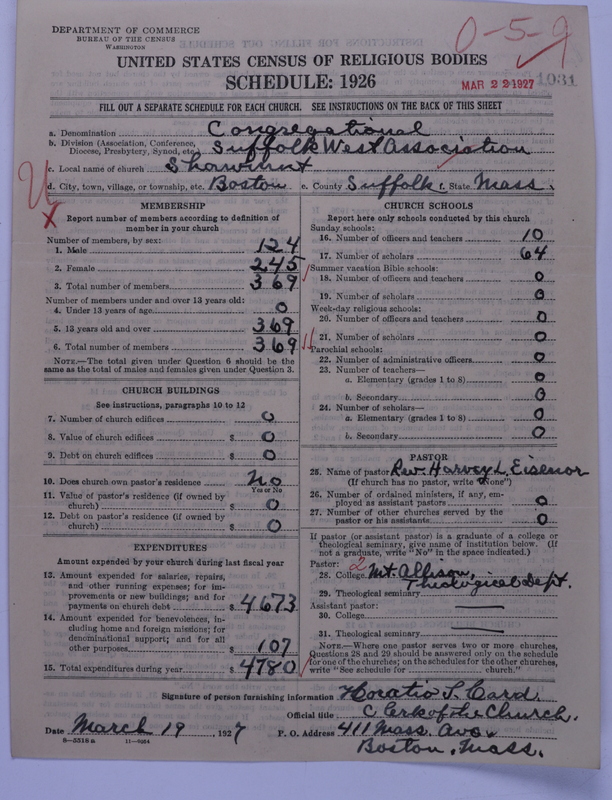 DEPARTMENT OF COMMERCE
BUREAU OF THE CENSUS
WASHINGTON
0-5-9
UNITED STATES CENSUS OF RELIGIOUS BODIES
SCHEDULE: 1926
MAR 22 1927
1031
FILL OUT A SEPARATE SCHEDULE FOR EACH CHURCH. SEE INSTRUCTIONS ON THE BACK OF THIS SHEET
a. Denomination Congregational
b. Division (Association, Conference, Diocese, Presbytery, Synod, etc.) Suffolk West Association
c. Local name of church Shawmut
d. City, town, village, or township, etc. Boston e. County Suffolk f. State Mass.
MEMBERSHIP
Report number of members according to definition of
member in your church
Number of members, by sex:
1. Male 124
2. Female 245
3. Total number of members 369
Number of members under and over 13 years old:
4. Under 13 years of age 0
5. 13 years old and over 369
6. Total number of members 369
NOTE.—The total given under Question 6 should be the
same as the total of males and females given under Question 3.
CHURCH BUILDINGS
See instructions, paragraphs 10 to 12
7. Number of church edifices 0
8. Value of church edifices $ 0
9. Debt on church edifices $ 0
10. Does church own pastor's residence No
Yes or No
11. Value of pastor's residence (if owned by
church) $ 0
12. Debt on pastor's residence (if owned by
church) $ 0
EXPENDITURES
Amount expended by your church during last fiscal year
13. Amount expended for salaries, repairs,
and other running expenses; for im-
provements or new buildings; and for
payments on church debt $ 4673
14. Amount expended for benevolences, in-
cluding home and foreign missions; for
denominational support; and for all
other purposes $ 107
15. Total expenditures during year $ 4780
CHURCH SCHOOLS
Report here only schools conducted by this church
Sunday schools:
16. Number of officers and teachers 10
17. Number of scholars 64
Summer vacation Bible schools:
18. Number of officers and teachers 0
19. Number of scholars 0
Week-day religious schools:
20. Number of officers and teachers 0
21. Number of scholars 0
Parochial schools:
22. Number of administrative officers 0
23. Number of teachers—
a. Elementary (grades 1 to 8) 0
b. Secondary 0
24. Number of scholars—
a. Elementary (grades 1 to 8) 0
b. Secondary 0
PASTOR
25. Name of pastor Rev. Harvey L. Eisenor
(If church has no pastor, write "None")
26. Number of ordained ministers, if any, em-
ployed as assistant pastors 0
27. Number of other churches served by the
pastor or his assistants 0
If pastor (or assistant pastor) is a graduate of a college or
theological seminary, give name of institution below. (If
not a graduate, write "No" in the space indicated.)
Pastor: 2
28. College Mt. Allison
29. Theological seminary Theological Dept.
Assistant pastor:
30. College
31. Theological seminary
NOTE.—Where one pastor serves two or more churches,
Questions 28 and 29 should be answered only on the schedule
for one of the churches; on the schedules for the other churches,
write "See schedule for ........ church."
Signature of person furnishing information Horatio S. Card
Official title Clerk of the Church.
Date March 19, 1927 P. O. Address 411 Mass. Ave.
Boston, Mass.
8-5518 a 11-9064